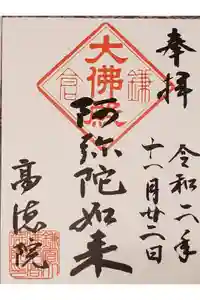 奉拝
令和二年
十一月廿二日
大佛殿
鎌倉
阿弥陀如来
高徳院